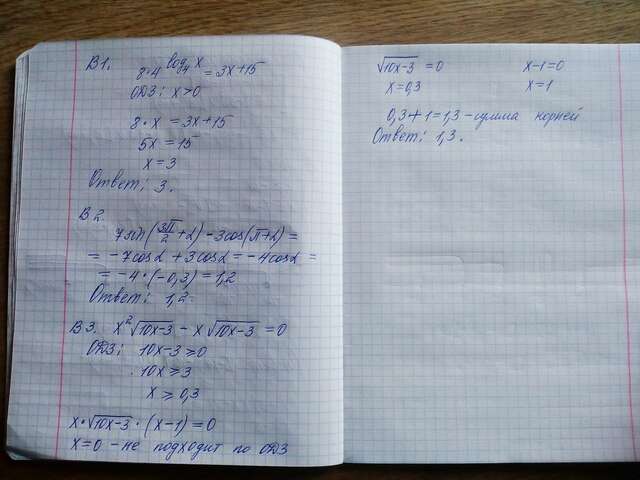 В1. 8•4^log₄x = 3x+15
ОДЗ: x>0
8•x = 3x+15
5x = 15
x = 3
Ответ: 3.
В2.
7sin(3π/2+α)-3cos(π+α)=
= -7cosα+3cosα=-4cosα =
= -4•(-0,3)=1,2
Ответ: 1,2
В3. x²√10x-3 - x√10x-3 = 0
ОДЗ: 10x-3⩾0
10x⩾3
x⩾0,3
x•√10x-3•(x-1)=0
x=0 - не подходит по ОДЗ
√10x-3 = 0 x-1=0
x=0,3 x=1
0,3+1=1,3 - сумма корней
Ответ: 1,3.